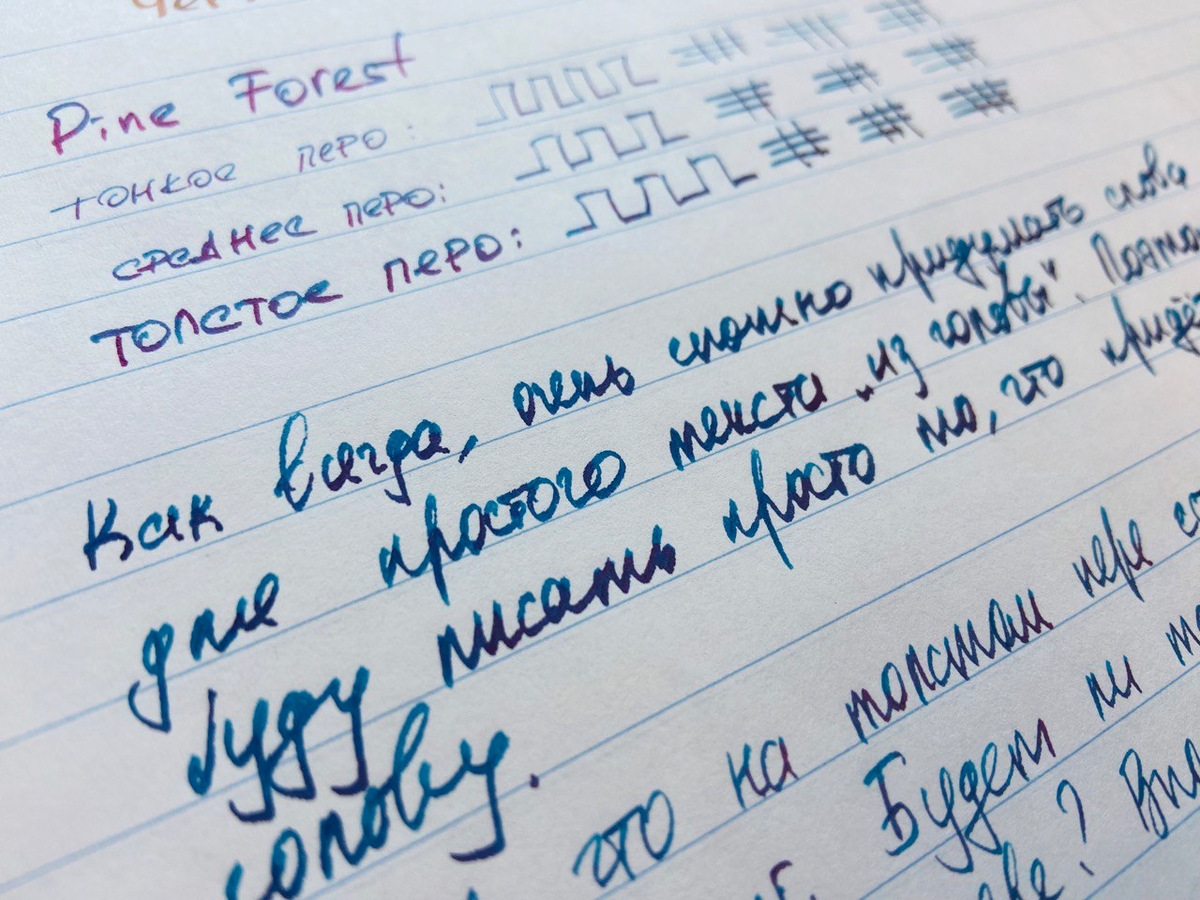 Pine Forest
тонкое перо:
среднее перо:
толстое перо:
Как всегда, очень сложно придумать слова
для простого текста „из головы“.
буду писать просто то, что придёт
голову.
что на толстом пере
Будет ли